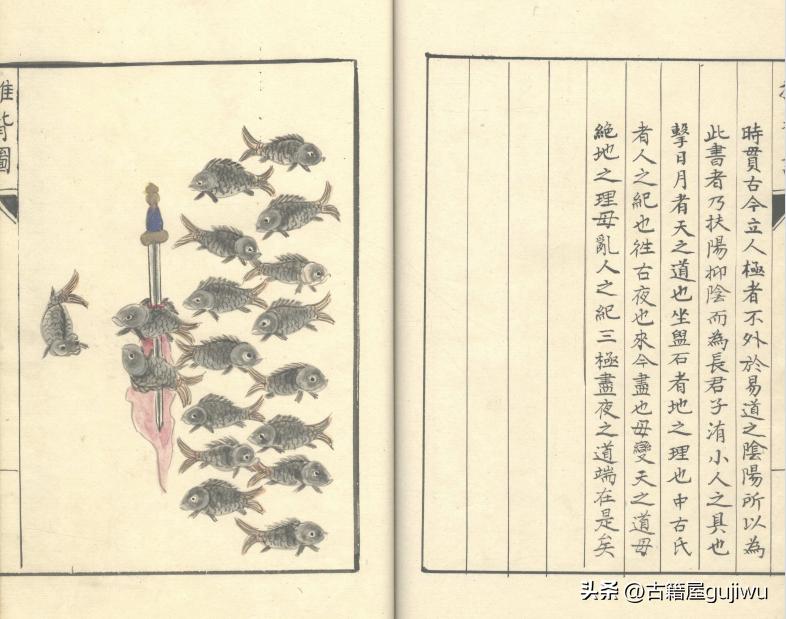 時貫古今立人極者不外於易道之陰陽所以為
此書者乃扶陽抑陰而為長君子洧小人之具也
擊日月者天之道也坐盤石者地之理也中古氏
者人之紀也徃古夜也來今晝也毋變天之道毋
絶地之理毋亂人之紀三極晝夜之道端在是矣
推背圖
头条 @古籍屋gujiwu